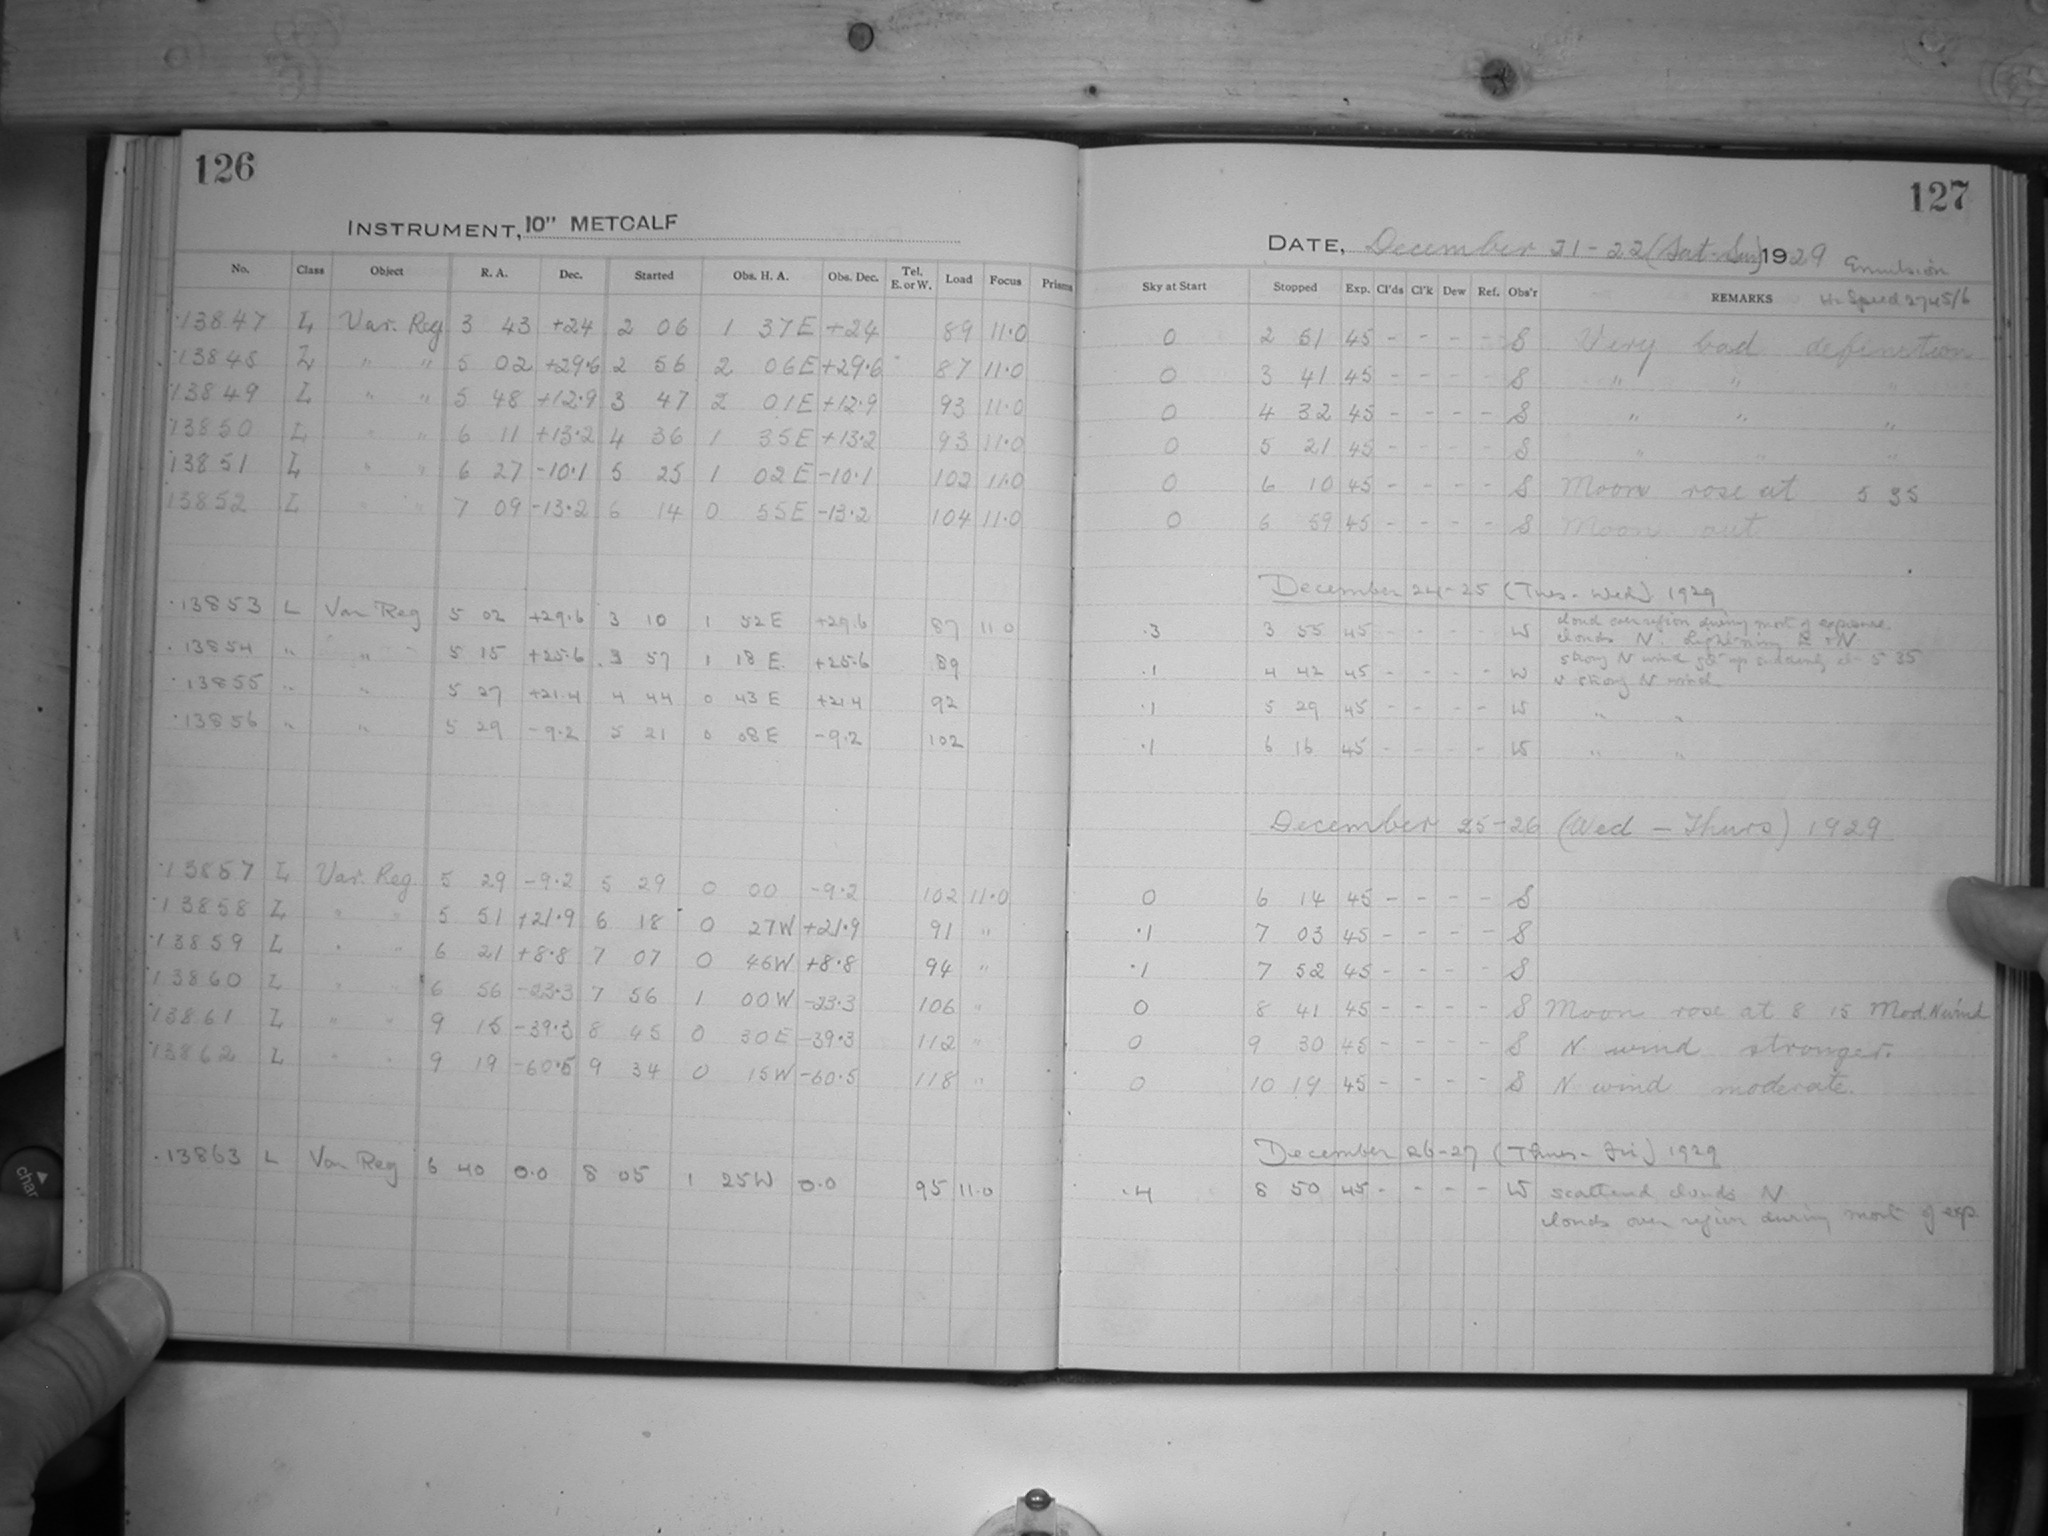 126
INSTRUMENT, 10" METCALF
No. Class Object R. A. Dec. Started Obs. H. A. Obs. Dec. Tel. E. or W. Load Focus Prisms
13847 L Var. Reg 3 43 +24 2 06 1 37E +24 89 11.0
13848 L " " 5 02 +29.6 2 56 2 06E +29.6 87 11.0
13849 L " " 5 48 +12.9 3 47 2 01E +12.9 93 11.0
13850 L " " 6 11 +13.2 4 36 1 35E +13.2 93 11.0
13851 L " " 6 27 -10.1 5 25 1 02E -10.1 102 11.0
13852 L " " 7 09 -13.2 6 14 0 55E -13.2 104 11.0
13853 L Var Reg 5 02 +29.6 3 10 1 52E +29.6 87 11.0
13854 " " 5 15 +25.6 3 57 1 18E +25.6 89
13855 " " 5 27 +21.4 4 44 0 43E +21.4 92
13856 " " 5 29 -9.2 5 21 0 08E -9.2 102
13857 L Var. Reg 5 29 -9.2 5 29 0 00 -9.2 102 11.0
13858 L " " 5 51 +21.9 6 18 0 27W +21.9 91 "
13859 L " " 6 21 +8.8 7 07 0 46W +8.8 94 "
13860 L " " 6 56 -23.3 7 56 1 00W -23.3 106 "
13861 L " " 9 15 -39.3 8 45 0 30E -39.3 112 "
13862 L " " 9 19 -60.5 9 34 0 15W -60.5 118 "
13863 L Var Reg 6 40 0.0 8 05 1 25W 0.0 95 11.0
127
DATE, December 21-22 (Sat-Sun) 1929
Emulsion
Sky at Start Stopped Exp. Cl'ds Cl'k Dew Ref. Obs'r REMARKS Hi Speed 2745/6
0 2 51 45 - - - - S Very bad definition
0 3 41 45 - - - - S " " "
0 4 32 45 - - - - S " " "
0 5 21 45 - - - - S " " "
0 6 10 45 - - - - S Moon rose at 5 35
0 6 59 45 - - - - S Moon out
December 24-25 (Tues-Wed) 1929
cloud over region during most of exposure.
.3 3 55 45 - - - - W clouds N. Lightning E + N.
strong N wind got up suddenly at 5 35
.1 4 42 45 - - - - W v strong N wind
.1 5 29 45 - - - - W " "
.1 6 16 45 - - - - W " "
December 25-26 (Wed - Thurs) 1929
0 6 14 45 - - - - S
.1 7 03 45 - - - - S
.1 7 52 45 - - - - S
0 8 41 45 - - - - S Moon rose at 8 15 Mod N wind
0 9 30 45 - - - - S N. wind stronger.
0 10 19 45 - - - - S N wind moderate.
December 26-27 (Thurs-Fri) 1929
.4 8 50 45 - - - - W scattered clouds N
clouds over region during most of exp
char